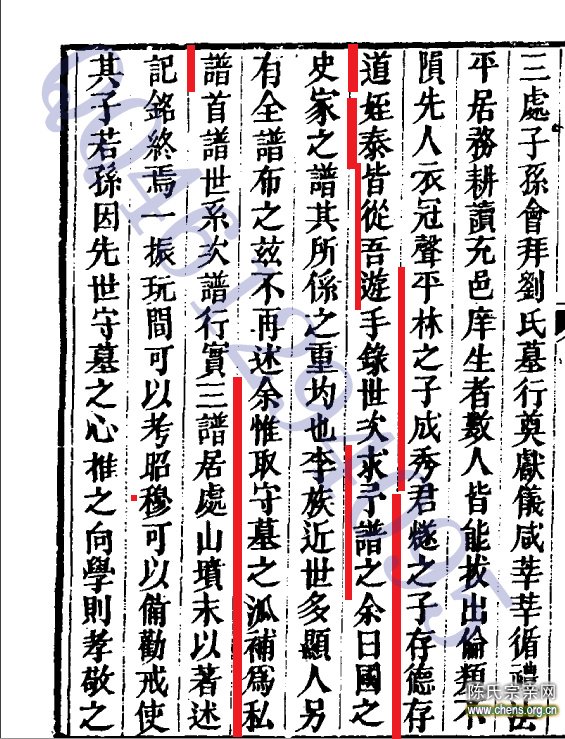 三處子孫會拜劉氏墓行奠獻儀咸莘莘循禮法
平居務耕讀充邑庠生者數人皆能拔出倫類不
隕先人衣冠聲平林之子成秀君燧之子存德存
道姪泰皆從吾遊手錄世次求予譜之余曰國之
史家之譜其所係之重均也李族近世多顯人另
有全譜布之茲不再述余惟取守墓之派補爲私
譜首譜世系次譜行實三譜居處山墳末以著述
記銘終焉一振玩間可以考昭穆可以備勸戒使
其子若孫因先世守墓之心推之向學則孝敬之
陈氏宗亲网
www.chens.org.cn